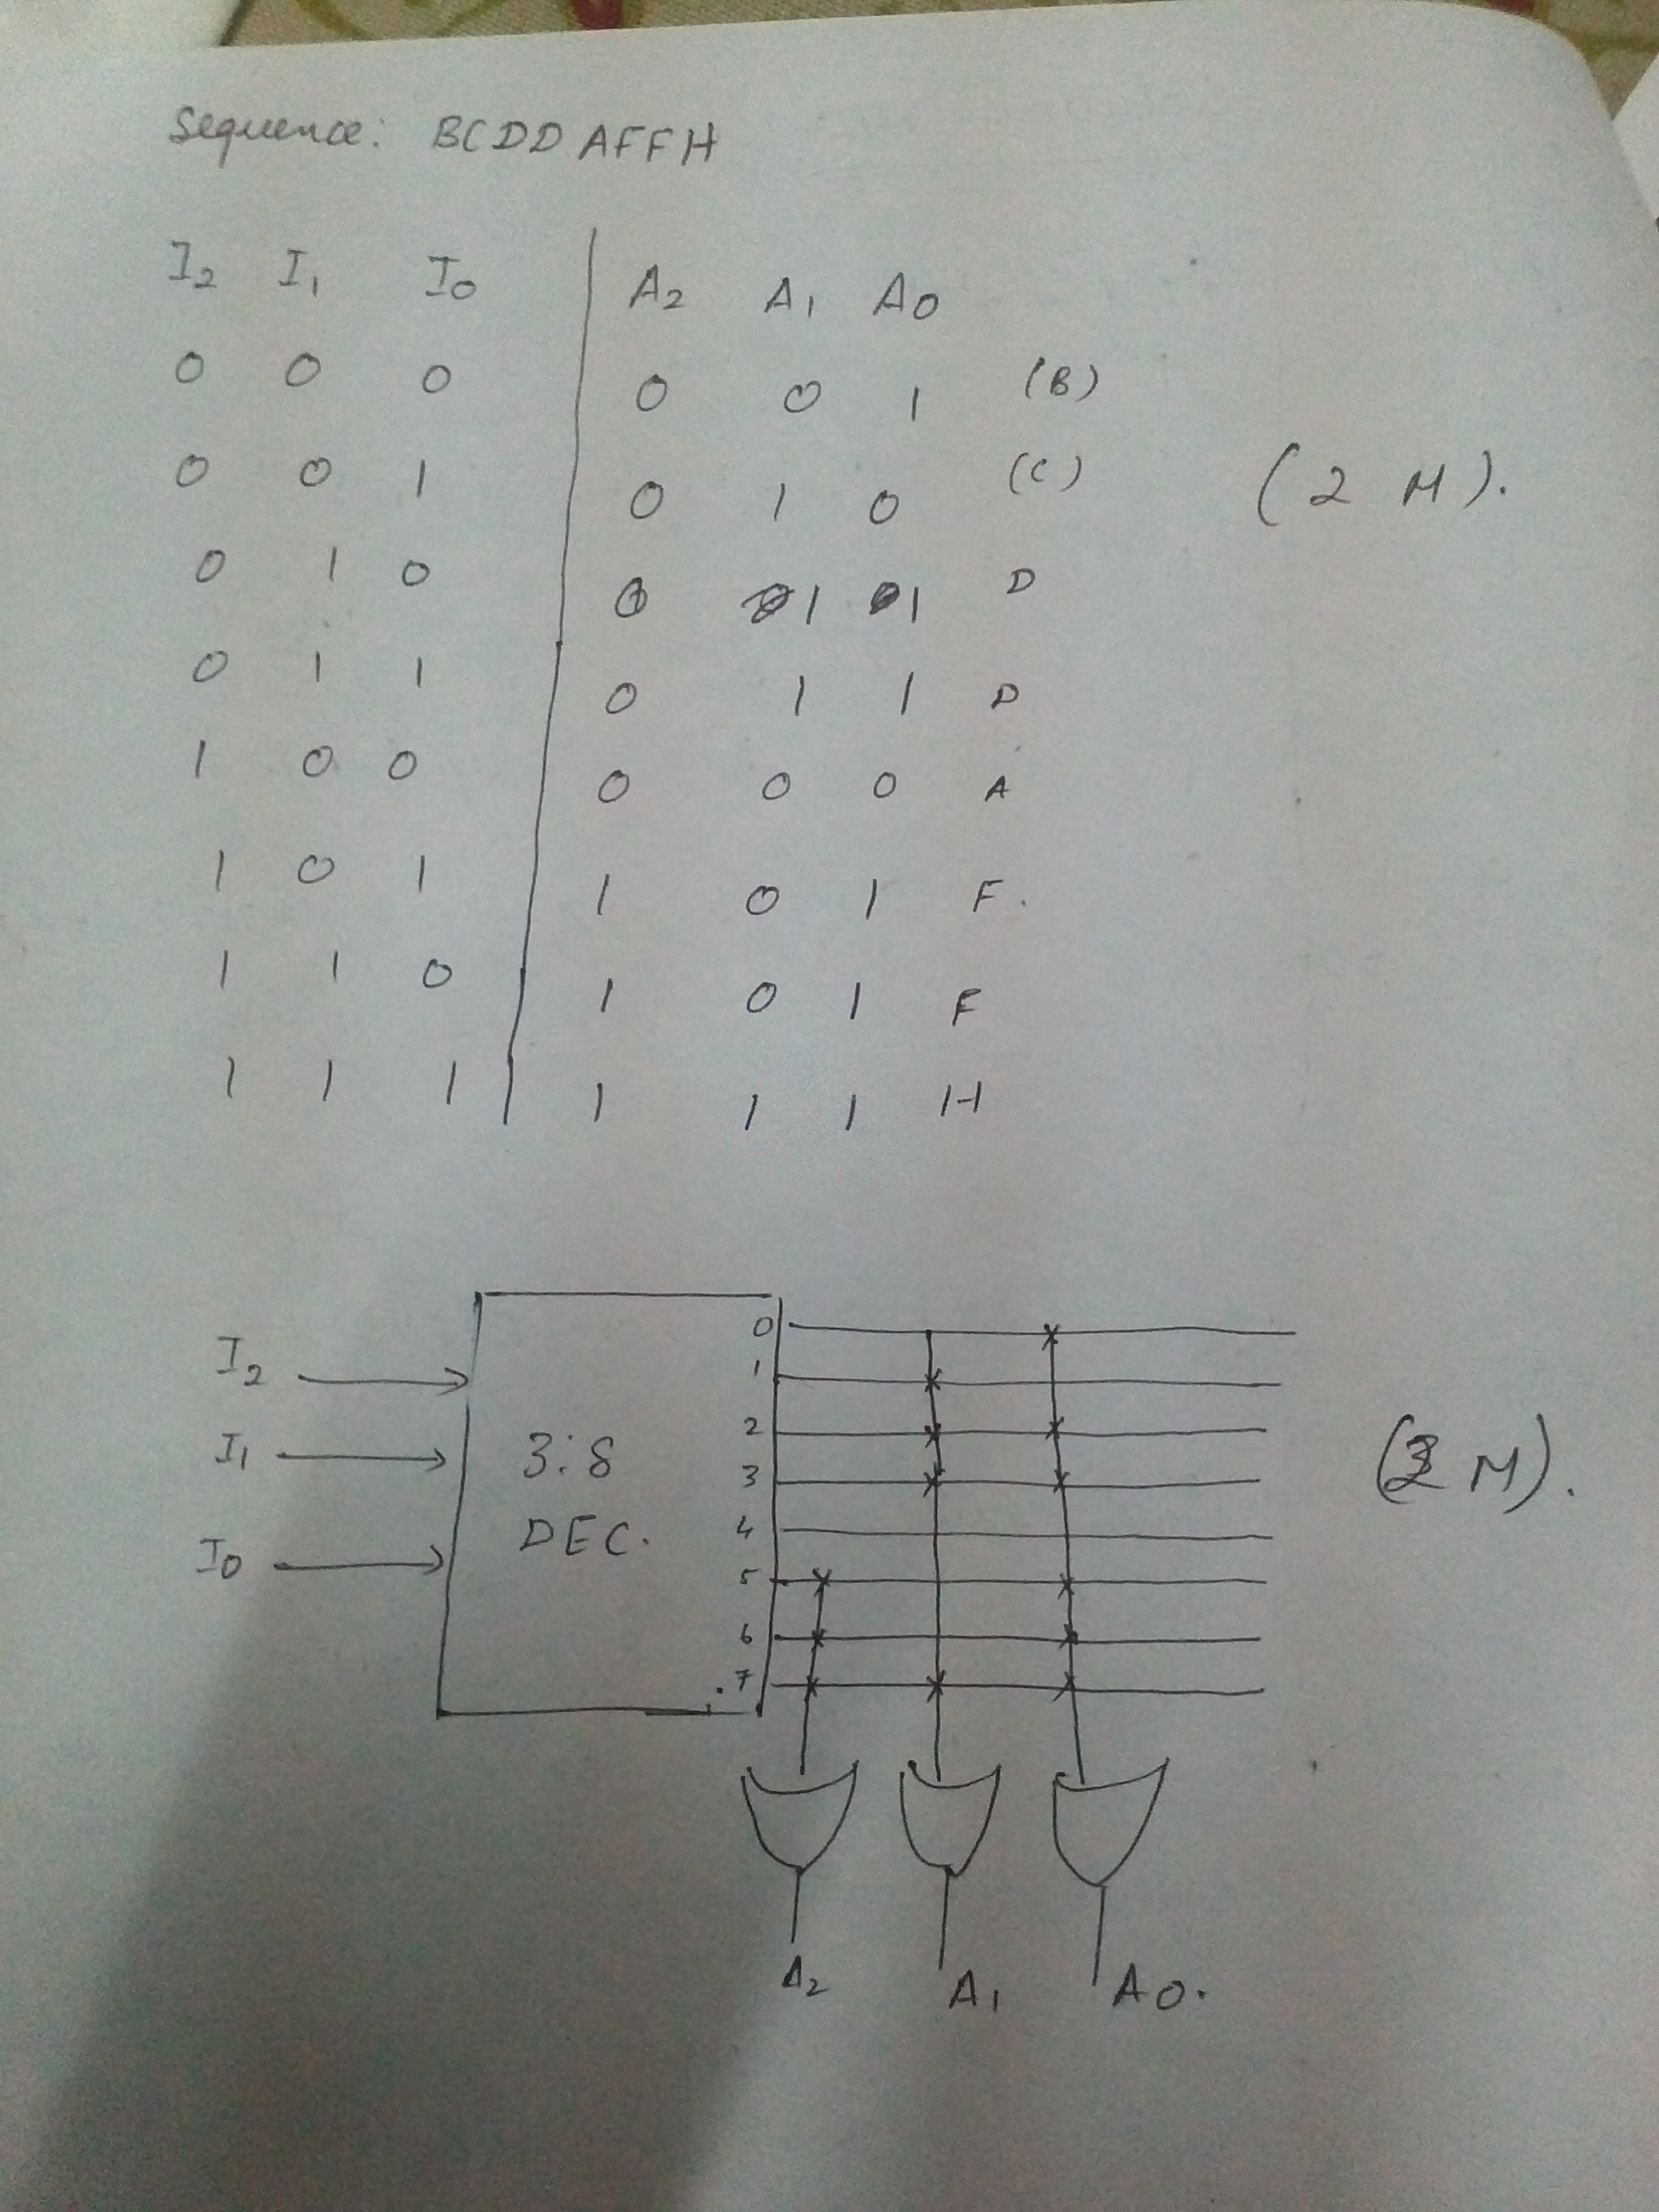 Sequence: BCDDAFFH
I2 I1 I0 A2 A1 A0
0 0 0 0 0 1 (B)
0 0 1 0 1 0 (C) (2 M).
0 1 0 0 1 1 D
0 1 1 0 1 1 D
1 0 0 0 0 0 A
1 0 1 1 0 1 F.
1 1 0 1 0 1 F
1 1 1 1 1 1 H
0
I2 1
I1 3:8 2 (3 M).
3
I0 DEC. 4
5
6
7
A2 A1 A0.